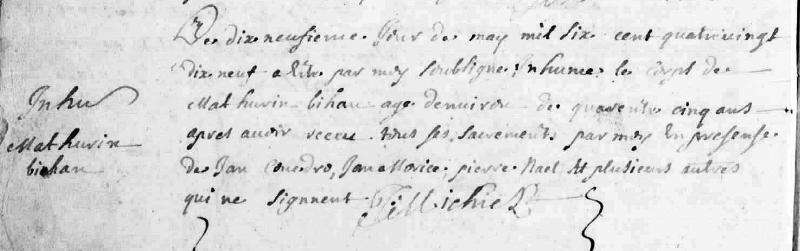 Le dix neufieme Jour de may mil six cent quatrevingt
dix neuf a êté par moy soubsigné Inhumé le corps de
Mathurin bihan age denviron de quarente cinq ans
apres avoir receu tous ses sacrements par moy En presense
de Jan Jan Morice pierre Nael Et plusieurs autres
qui ne signnent
Inhu
Mathurin
bihan